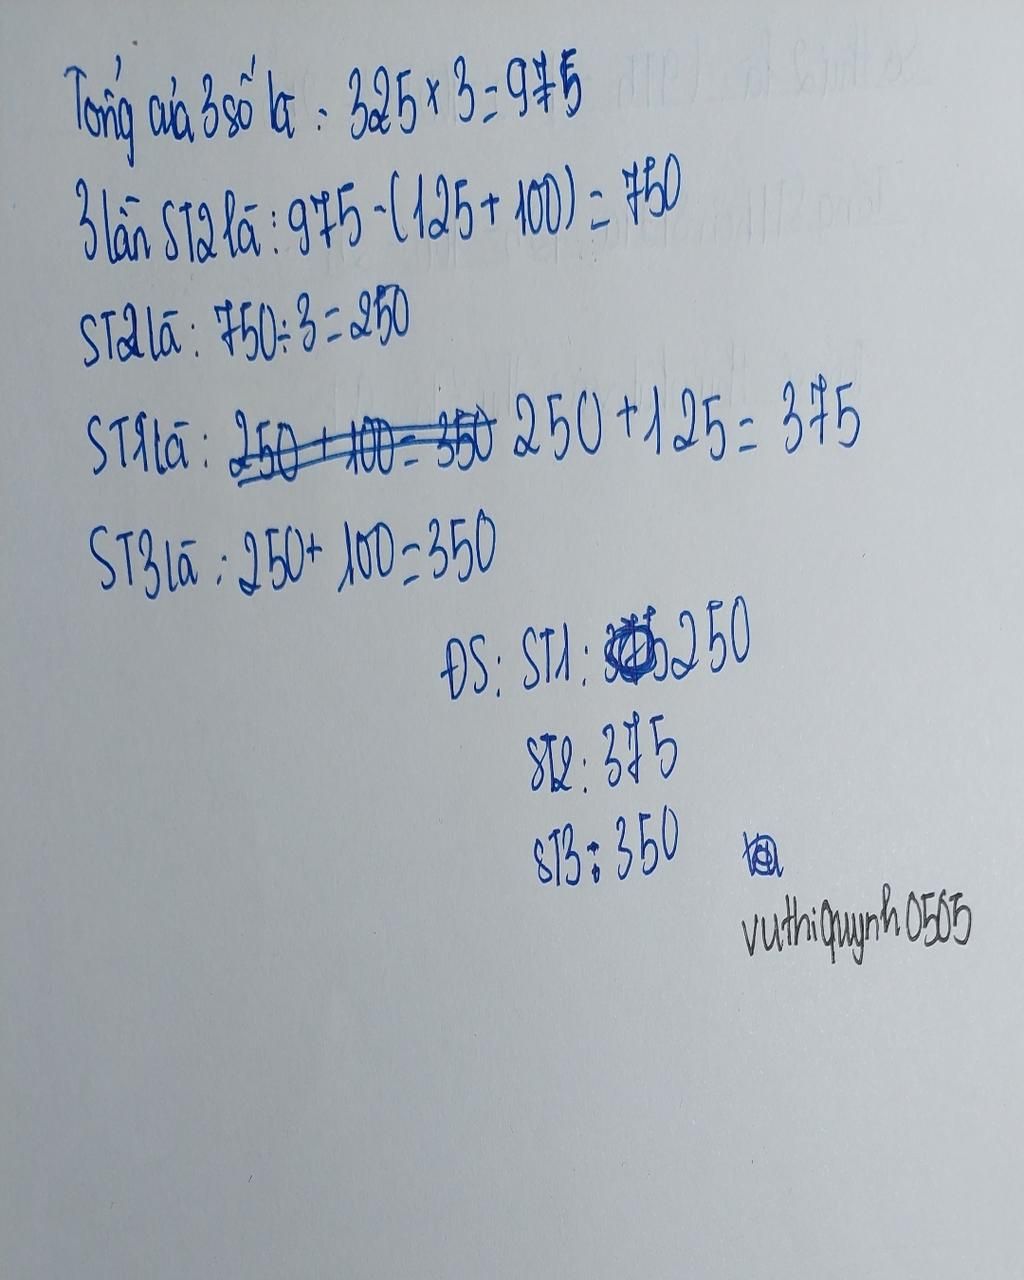 Tổng của 3 số là : 325 × 3 = 975
3 lần ST2 là : 975 - (125 + 100) = 750
ST2 là : 750 : 3 = 250
ST1 là : 250 + 100 = 350 250 + 125 = 375
ST3 là : 250 + 100 = 350
ĐS : ST1 : 250
ST2 : 375
ST3 : 350
vuthiquynh0505